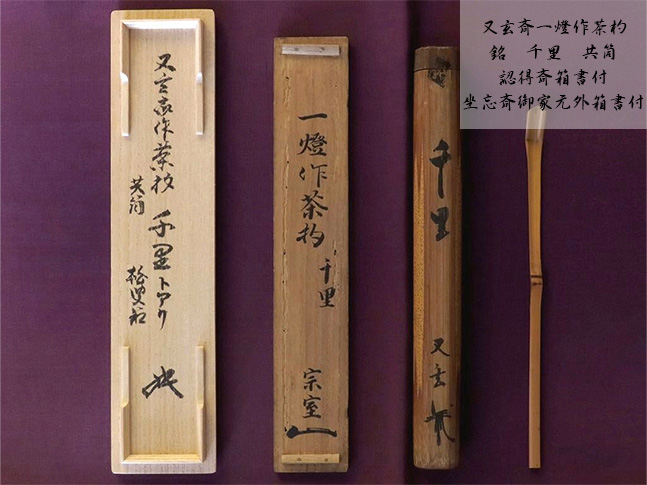 又玄斎一燈作茶杓
銘 千里 共筒
認得斎箱書付
坐忘斎御家元外箱書付
又玄斎作茶杓
共筒
千里トアリ
一燈作茶杓
千里
宗室
千里
又玄